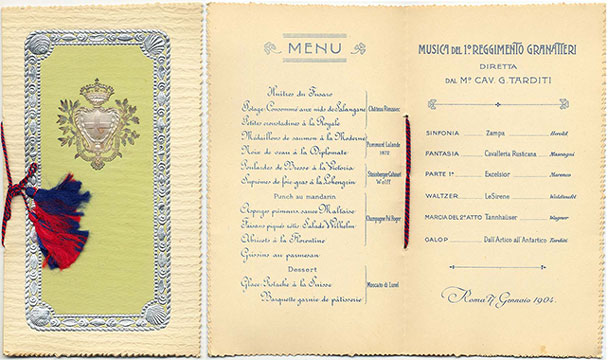 MENU
Huîtres du Fusaro
Potage-Consommé aux nids de Salangane
Petites croustadines à la Royale
Médaillons de saumon à la Moderne
Noix de veau à la Diplomate
Poulardes de Bresse à la Victoria
Suprêmes de foie gras à la Lohengrin
Punch au mandarin
Asperges primeurs sauce Maltaise
Faisans piqués rôtis Salade Wilhelm
Abricots à la Florentine
Grissins au parmesan
Dessert
Glace à la Suisse
Barquette garnie de pâtisserie
Château
Pommard Lalande
1872
Steinberger Cabinet
Wolff
Champagne Pol Roger
Moscato di Lunel
MUSICA DEL 1º REGGIMENTO GRANATIERI
DIRETTA
DAL Mº CAV. G. TARDITI
SINFONIA Zampa Herold
FANTASIA Cavalleria Rusticana Mascagni
PARTE 1ª Excelsior Marenco
WALTZER Le Sirene Waldteufel
MARCIA DEL 2º ATTO Tannhäuser Wagner
GALOP Dall'Artico all'Antartico Tarditi
Roma Gennaio 1904.